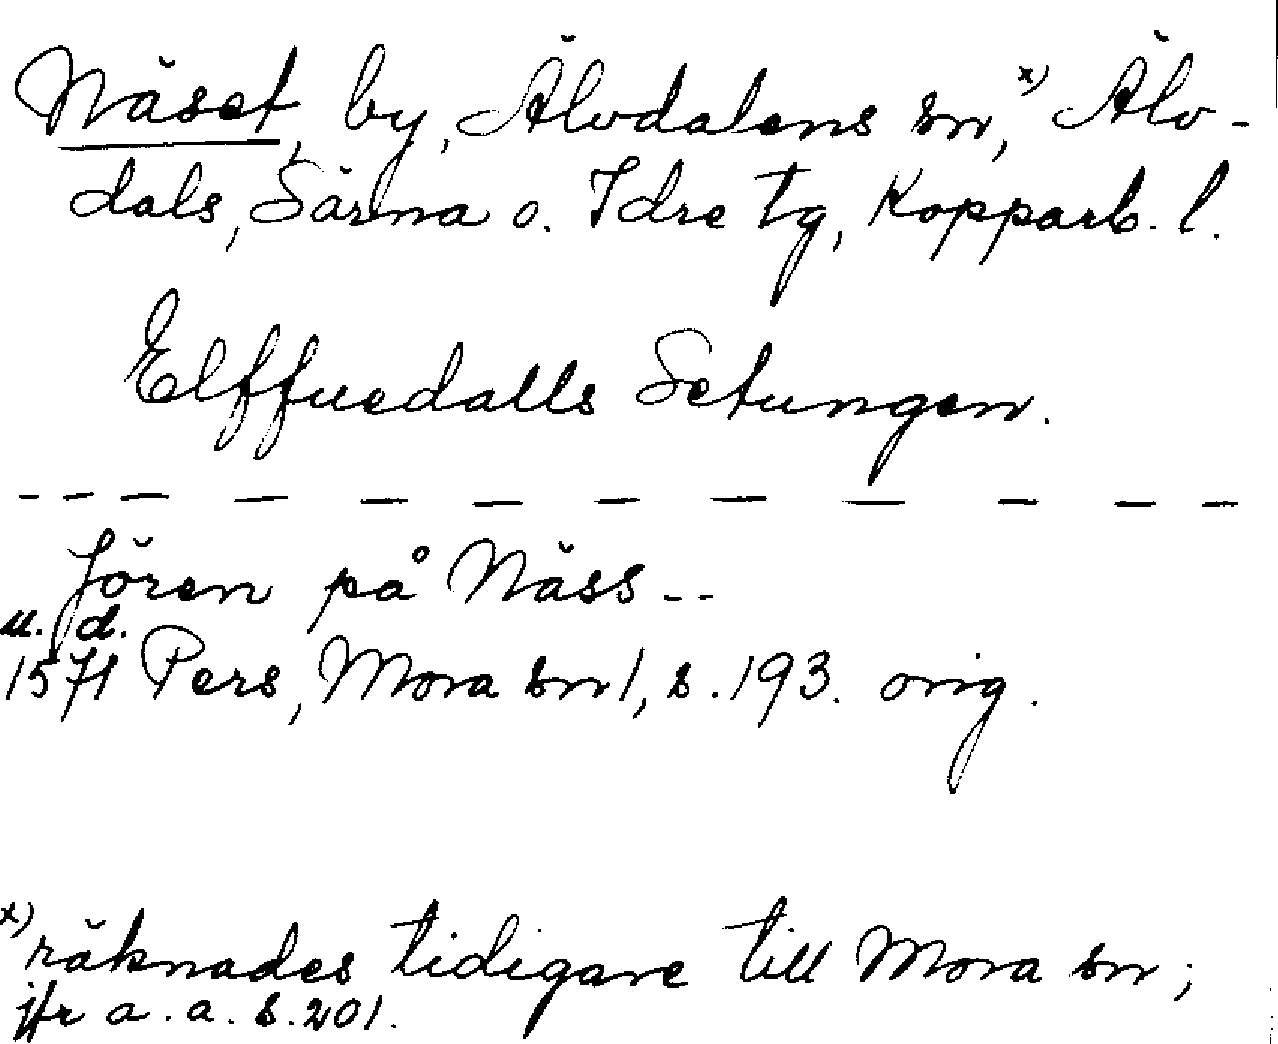 Näset, by, Älvdalens sn,ˣ⁾ Älv-
dals, Särna o. Idre tg, Kopparb. l.
Elffuedalls Setungen.
- - — — — — — — — — — — -
Jören på Näss --
u. d.
1571 Pers, Mora sn 1, s. 193. orig.
ˣ⁾ räknades tidigare till Mora sn;
jfr a. a. s. 201.